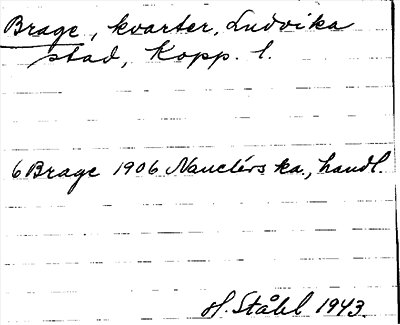 Brage, kvarter, Ludvika
stad, Kopp. l.
6 Brage 1906 Nanclérs ka., handl.
H. Ståhl 1943.